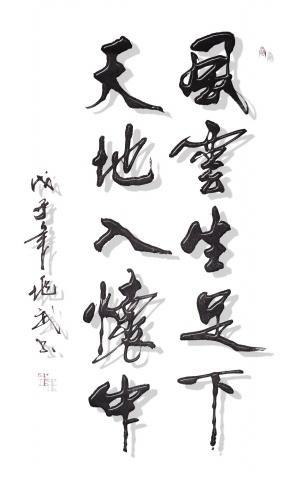 風雲生足下
天地入懷中
戊子年